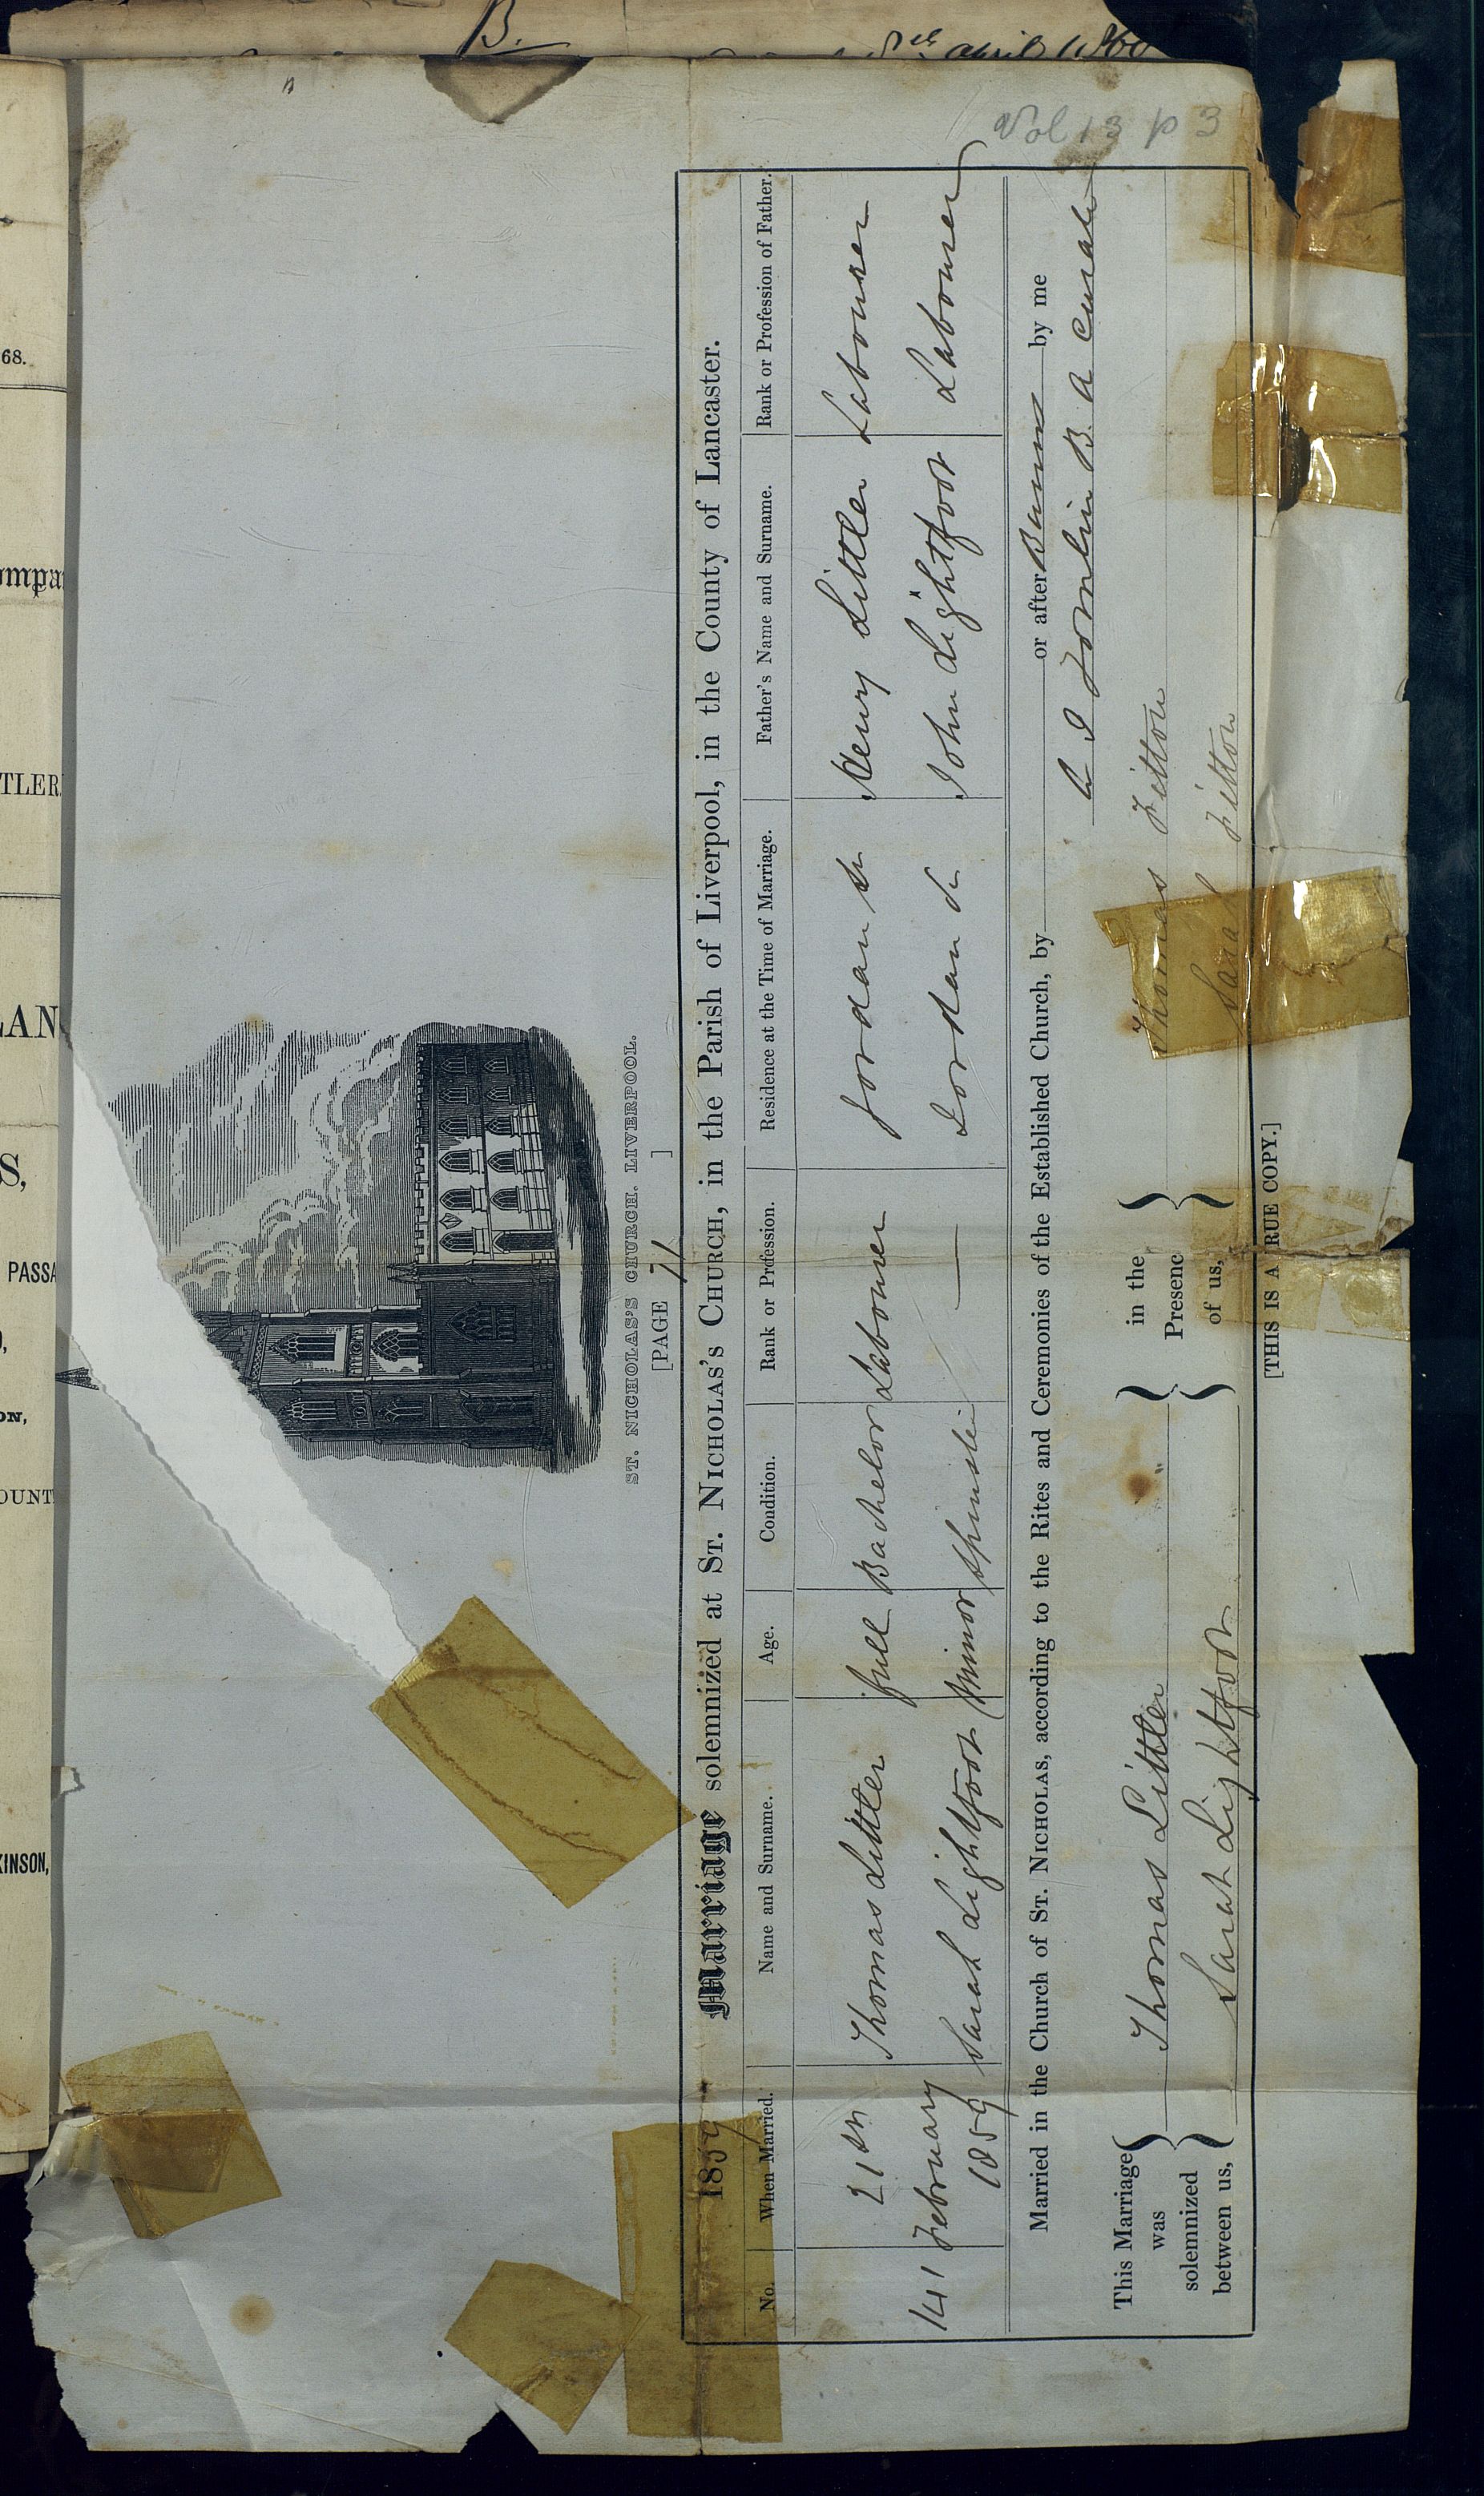 B.
april 1860
Vol 13 p 3
68.
ompa
TLER
LAN
S,
PASSA
ON,
OUNT
KINSON,
ST. NICHOLAS'S CHURCH. LIVERPOOL.
[PAGE 71 ]
1859 Marriage solemnized at St. Nicholas's Church, in the Parish of Liverpool, in the County of Lancaster.
No. When Married. Name and Surname. Age. Condition. Rank or Profession. Residence at the Time of Marriage. Father's Name and Surname. Rank or Profession of Father.
21st Thomas Littler full Bachelor Labourer Jordan St Henry Littler Labourer
141 February Sarah Lightfoot Minor Spinster — Jordan St John Lightfoot Labourer
1859
Married in the Church of St. Nicholas, according to the Rites and Ceremonies of the Established Church, by or after Banns by me
J Tomlin B. A Curate
This Marriage was solemnized between us, Thomas Littler in the Thomas Fitton
Sarah Lightfoot Presene of us, Sarah Fitton
[THIS IS A RUE COPY.]